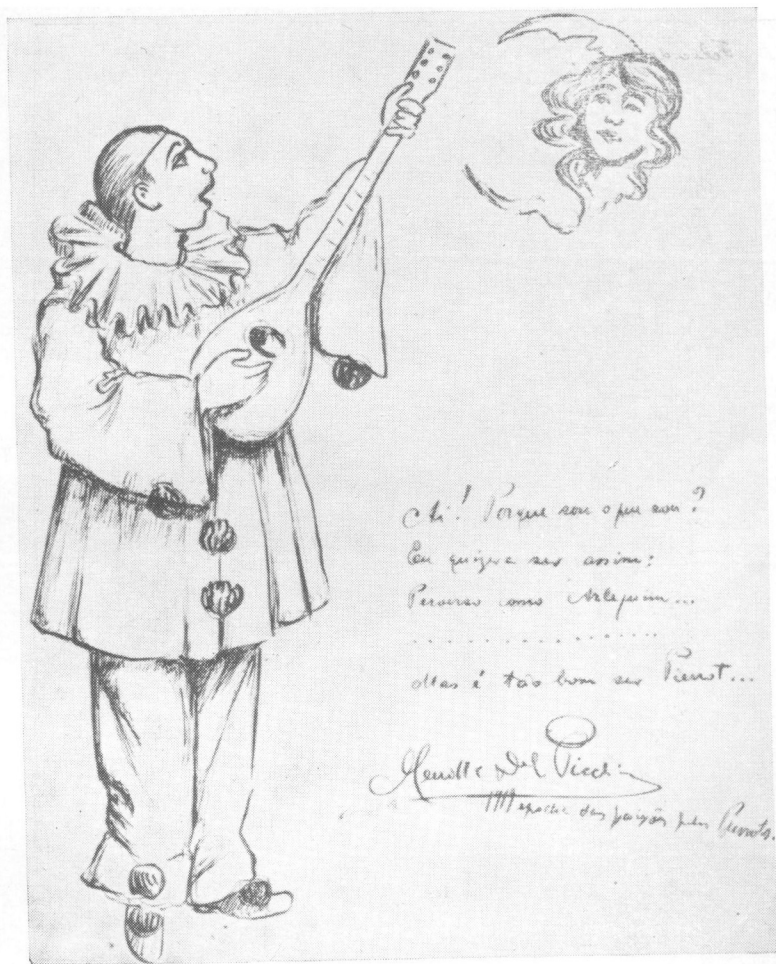 Ai! Porque sou o que sou?
Eu quizera ser assim:
Perverso como Arlequim...
. . . . . . . . . . . . . . . . .
Mas é tão bom ser Pierrot...
Menotti Del Picchia
1919 epocha das paixões pelos Pierrots.